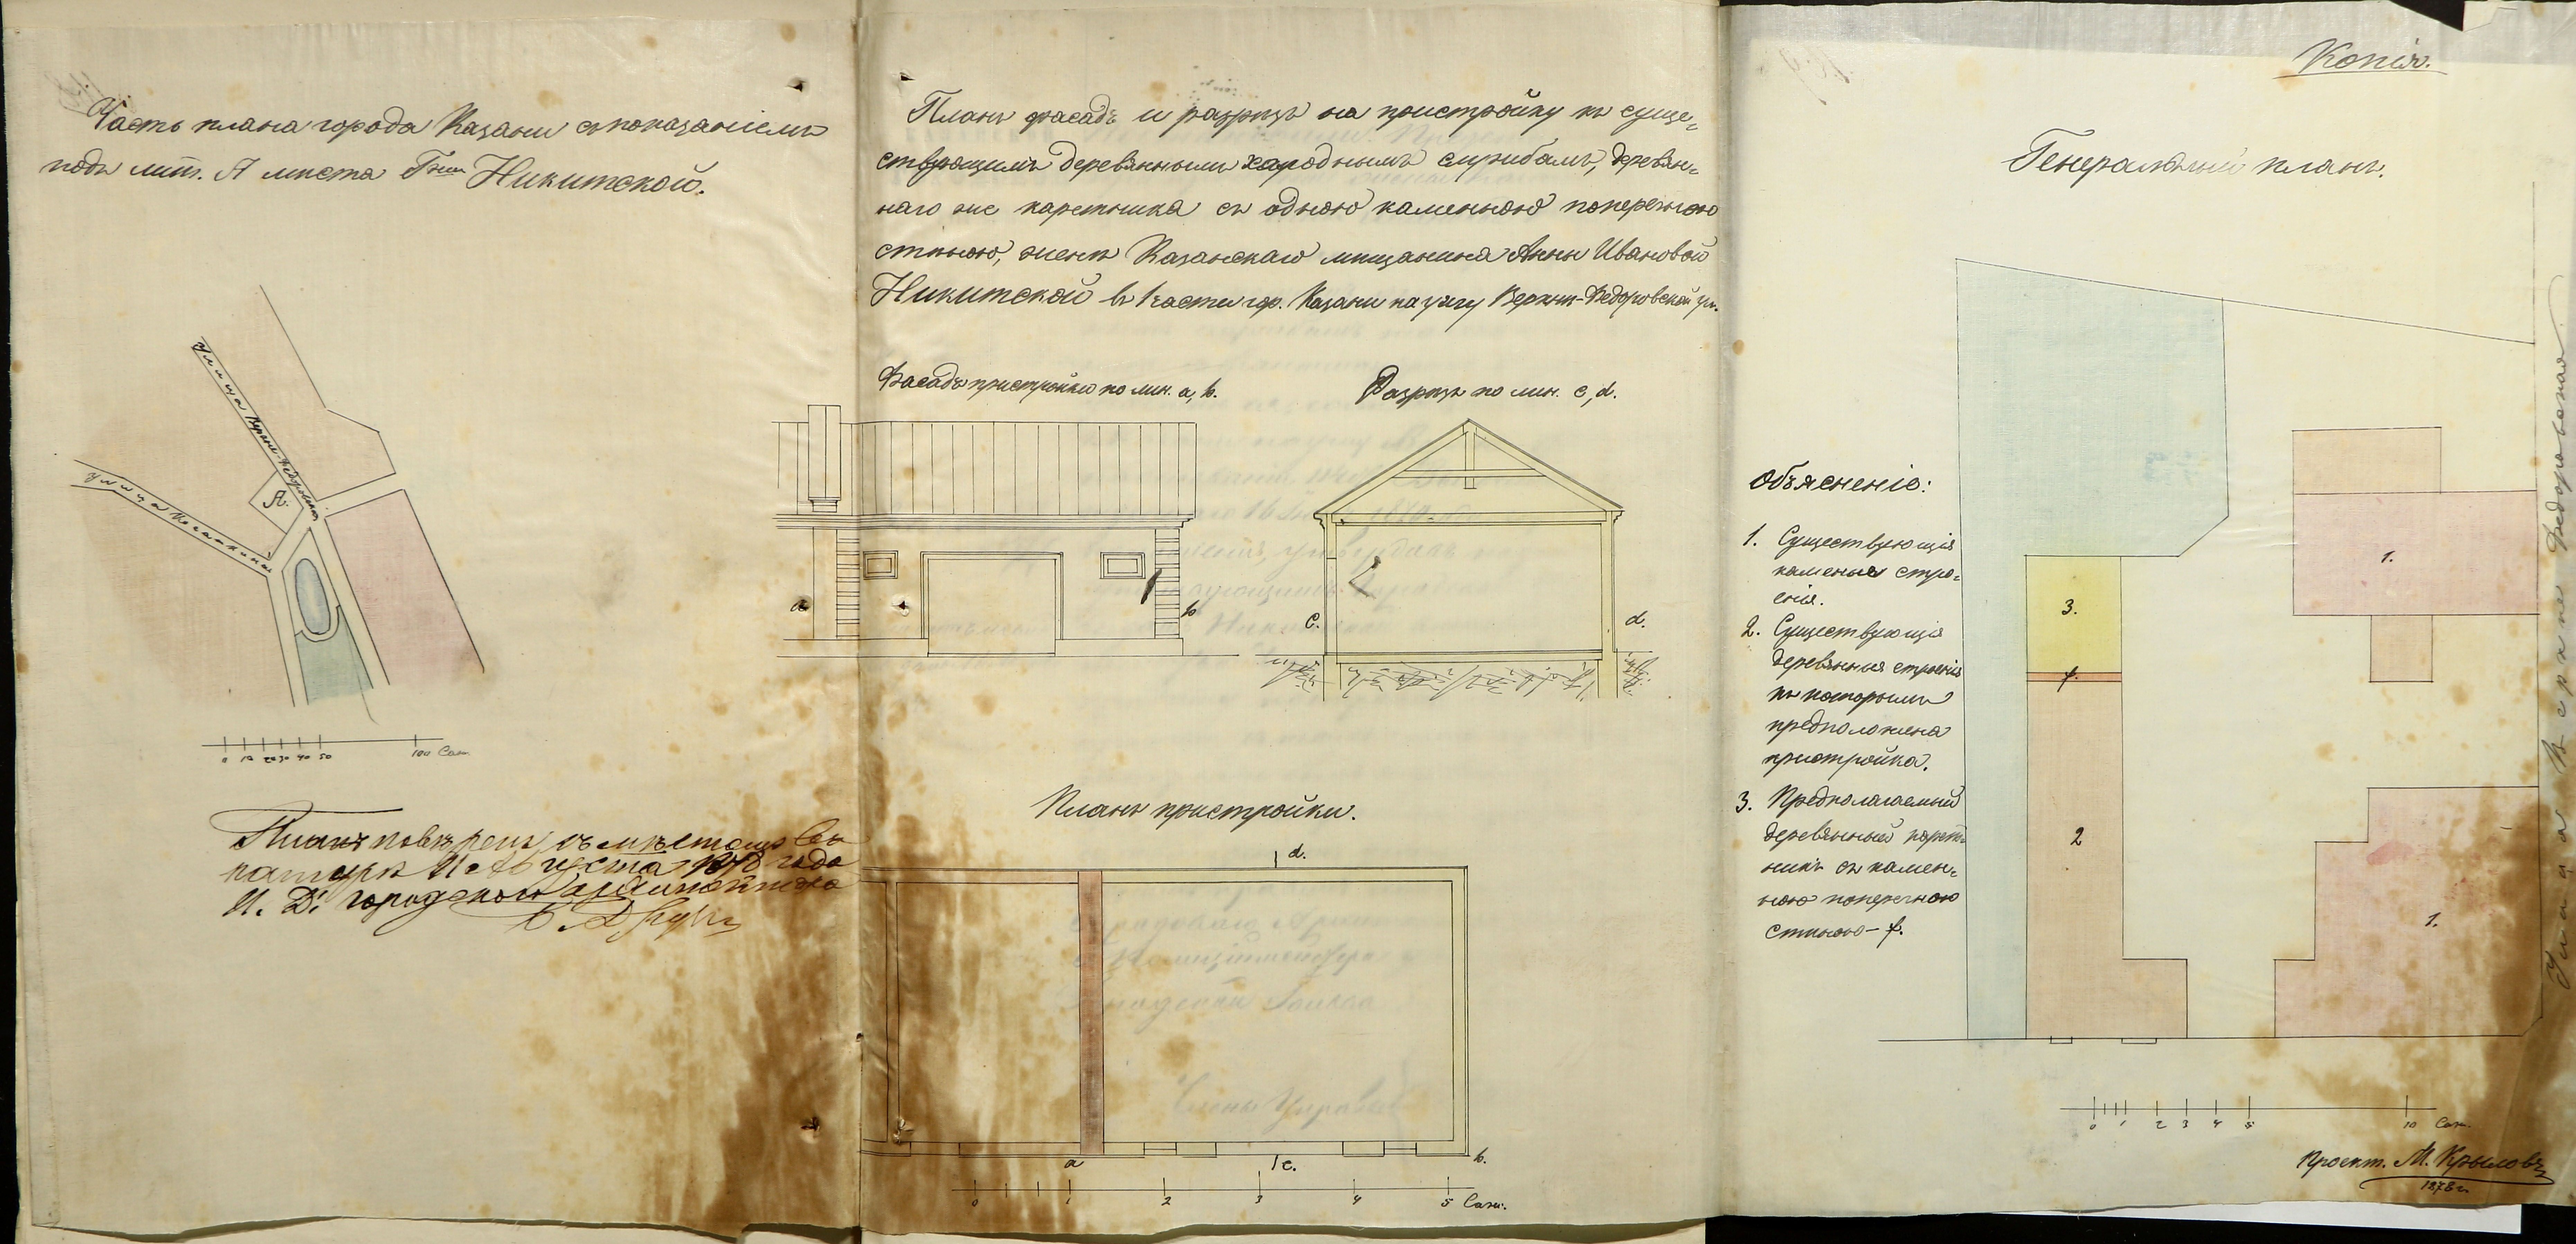 Часть плана города Казани съ показаніемъ
подъ лит. А мѣста Гжи Никитской.
Улица Верхне-Ѳедоровская
А.
Улица
0 10 20 30 40 50 100 Саж.
Планъ повѣренъ съ мѣстомъ въ
натурѣ Августа 1878 года
И. Д. городскаго Архитектора
Планъ фасадъ и разрѣзъ на пристройку къ суще-
ствующимъ деревяннымъ холоднымъ службамъ, деревян-
наго же каретника съ одною каменною поперечною
стѣною, женѣ Казанскаго мѣщанина Анны Ивановой
Никитской въ 1 части гор. Казани на углу Верхне-Ѳедоровской ул.
Фасадъ пристройки по лин. a, b.
Разрѣзъ по лин. c, d.
a
b
c.
d.
Планъ пристройки.
d.
a
c.
b.
0 1 2 3 4 5 Саж.
Копія.
Генеральный планъ.
Объясненіе:
1. Существующія
каменныя строе-
нія.
2. Существующія
деревянныя строенія
къ которымъ
предположена
пристройка.
3. Предполагаемый
деревянный карет-
никъ съ камен-
ною поперечною
стѣною - f.
3.
f.
2
1.
1.
Улица Верхне Ѳедоровская
0 1 2 3 4 5 10 Саж.
Проект. М. Крыловъ
1878 г.